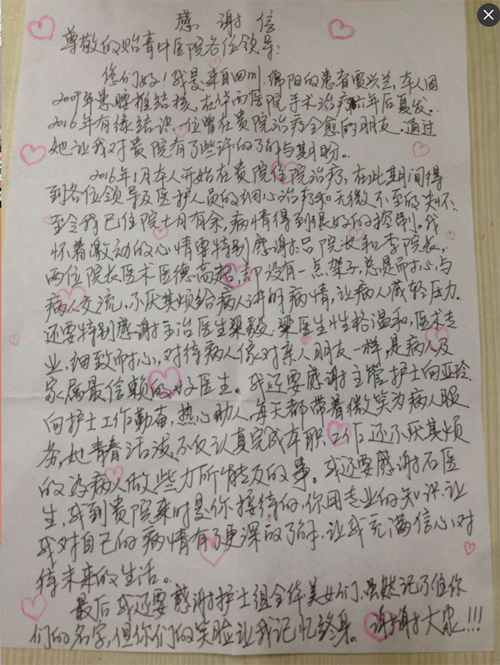 感谢信
尊敬的贻青中医院各位领导:
您们好!我是来自四川绵阳的患者贾兴兰,本人因
2009年患腰椎结核,在华西医院手术治疗,年后复发。
2016年有缘结识一位曾在贵院治疗全愈的朋友,通过
她让我对贵院有了些许的了解与期盼。
2016年1月本人开始在贵院住院治疗,在此期间得
到各位领导及医护人员的细心治疗和无微不至的关怀。
至今我已住院七月有余,病情得到很好的控制。我
怀着激动的心情要特别感谢吕院长和李院长,
两位院长医术医德高超,却没有一点架子,总是耐心与
病人交流,不厌其烦给病人讲解病情,让病人减轻压力。
还要特别感谢主治医生梁毅,梁医生性格温和,医术专
业,细致耐心,对待病人像对亲人朋友一样,是病人及
家属最信赖的好医生。我还要感谢主管护士向亚玲,
向护士工作勤奋,热心助人,每天都带着微笑为病人服
务,她青春活泼,不仅认真完成本职工作,还不厌其烦
的为病人做些力所能及的事。我还要感谢石医
生,我到贵院来时是你接待的,你用专业的知识,让
我对自己的病情有了更深的了解,让我充满信心对
待未来的生活。
最后我还要感谢护士组全体美女们,虽然记不住你
们的名字,但你们的笑脸让我记忆终身。谢谢大家!!!